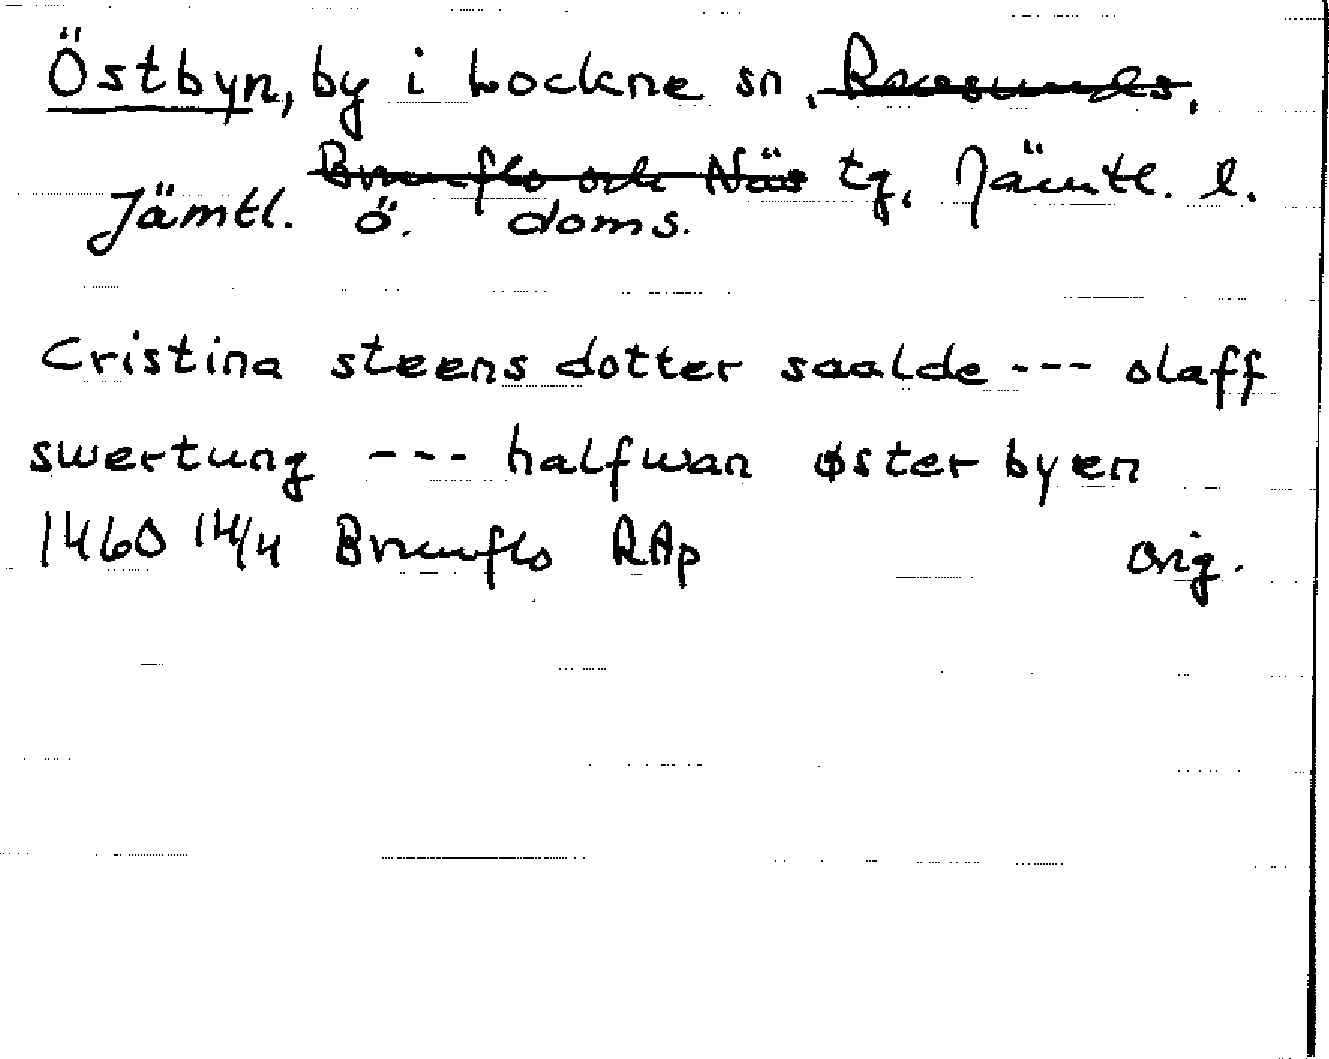 Östbyn, by i Lockne sn, Ragunds,
Brunflo och Näs tg, Jämtl. l.
Jämtl. ö. doms.
Cristina steens dotter saalde --- olaff
swertung --- halfwan øster byen
1460 14/4 Brunflo RAp orig.